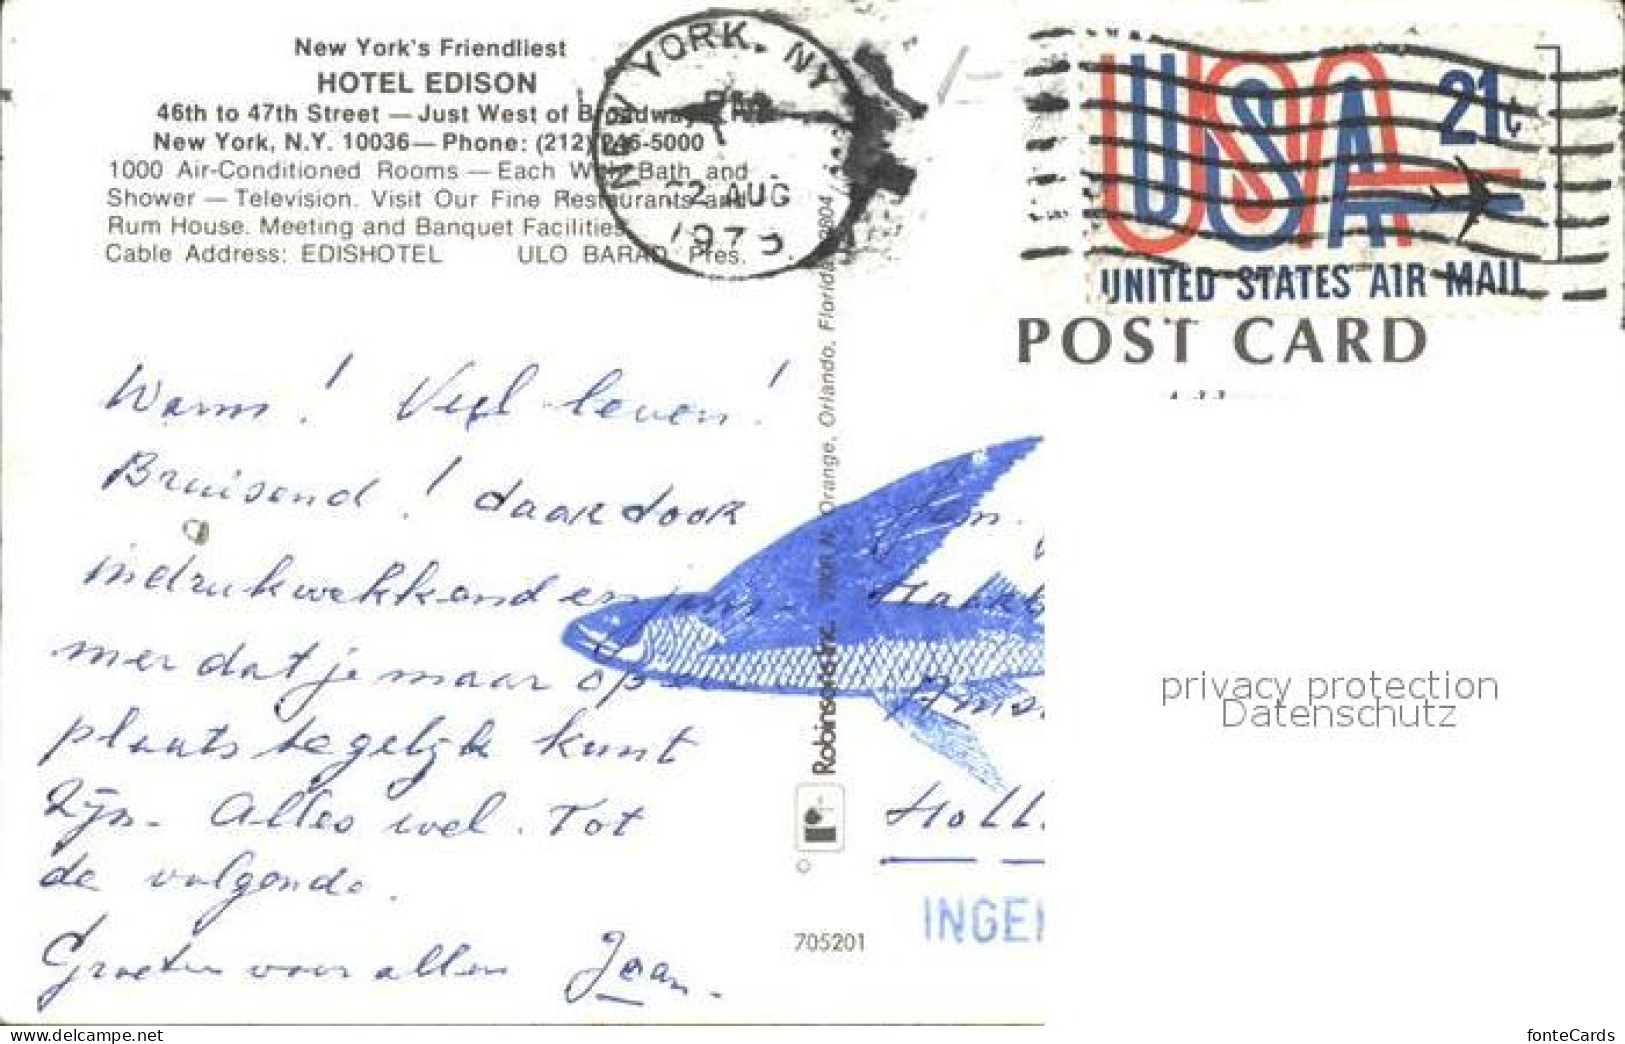 New York's Friendliest
HOTEL EDISON
46th to 47th Street — Just West of Broadway
New York, N.Y. 10036 — Phone: (212) 246-5000
1000 Air-Conditioned Rooms — Each With Bath and
Shower — Television. Visit Our Fine Restaurants and
Rum House. Meeting and Banquet Facilities
Cable Address: EDISHOTEL ULO BARAD Pres.
NEW YORK, NY
PM
22 AUG
1973
USA 21¢
UNITED STATES AIR MAIL
POST CARD
Warm! Veel leven!
Bruisend! daardoor
indrukwekkend en jam-
mer dat je maar op
plaats tegelijk kunt
zijn. Alles wel. Tot
de volgende.
Groeten voor allen Jaan.
Robinsons Inc. Orange, Orlando, Florida
705201
Fam.
Holl
INGE
privacy protection
Datenschutz
www.delcampe.net
fonteCards